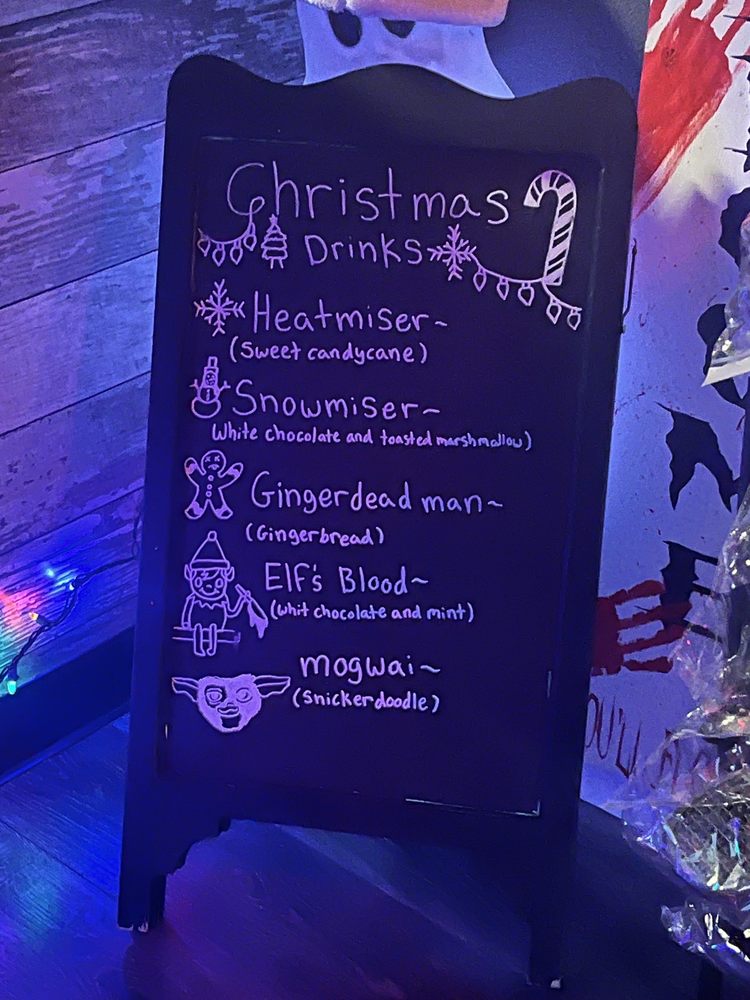 Christmas
Drinks
Heatmiser~
(Sweet candycane)
Snowmiser~
White chocolate and toasted marshmallow)
Gingerdead man~
(Gingerbread)
Elf's Blood~
(whit chocolate and mint)
mogwai~
(Snickerdoodle)